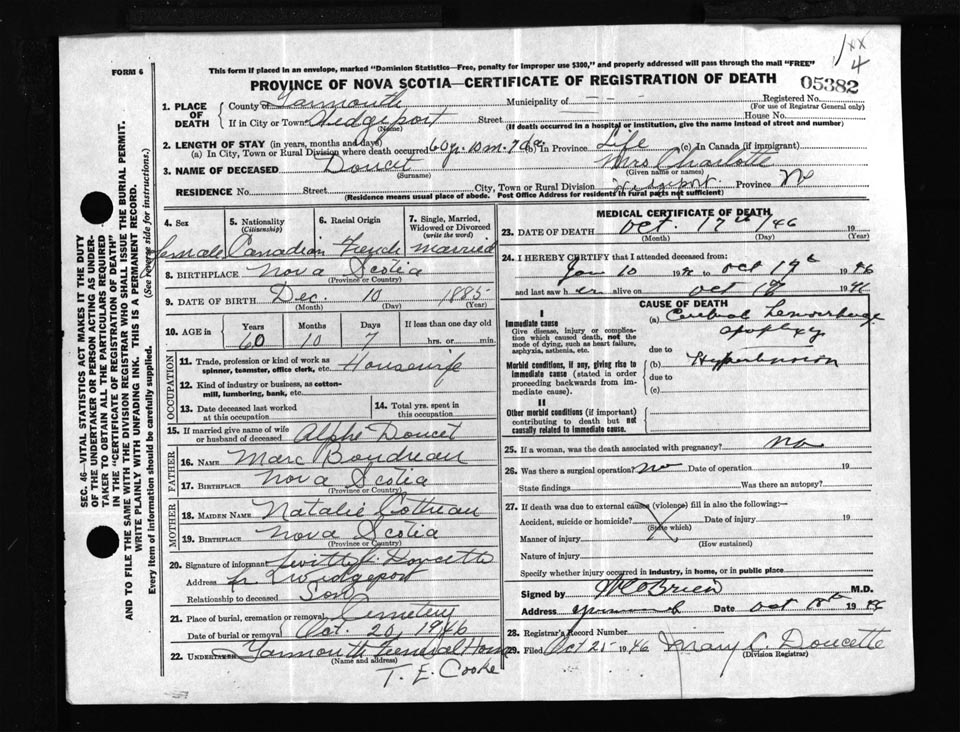 1xx
4
FORM 6
This form if placed in an envelope, marked "Dominion Statistics—Free, penalty for improper use $300," and properly addressed will pass through the mail "FREE"
PROVINCE OF NOVA SCOTIA—CERTIFICATE OF REGISTRATION OF DEATH
05382
1. PLACE OF DEATH
County of Yarmouth Municipality of – – Registered No.
(For use of Registrar General only)
If in City or Town Wedgeport Street House No.
(Name) (If death occurred in a hospital or institution, give the name instead of street and number)
2. LENGTH OF STAY (in years, months and days)
(a) In City, Town or Rural Division where death occurred 60y. 10m. 7da (b) In Province Life (c) In Canada (if immigrant)
3. NAME OF DECEASED Doucet Mrs Charlotte
(Surname) (Given name or names)
RESIDENCE No. Street City, Town or Rural Division Wedgeport Province NS
(Residence means usual place of abode. Post Office Address for residents in rural parts not sufficient)
4. Sex
female
5. Nationality
(Citizenship)
Canadian
6. Racial Origin
French
7. Single, Married, Widowed or Divorced
(write the word)
married
8. BIRTHPLACE Nova Scotia
(Province or Country)
9. DATE OF BIRTH Dec. 10 1885
(Month) (Day) (Year)
10. AGE in
Years Months Days If less than one day old
60 10 7 hrs. or min.
OCCUPATION
11. Trade, profession or kind of work as
spinner, teamster, office clerk, etc. Housewife
12. Kind of industry or business, as cotton-
mill, lumbering, bank, etc.
13. Date deceased last worked
at this occupation
14. Total yrs. spent in
this occupation
15. If married give name of wife
or husband of deceased Alphe Doucet
FATHER
16. NAME Marc Boudreau
17. BIRTHPLACE Nova Scotia
(Province or Country)
MOTHER
18. MAIDEN NAME Natalie Cottreau
19. BIRTHPLACE Nova Scotia
(Province or Country)
20. Signature of informant Doucette
Address Wedgeport
Relationship to deceased Son
21. Place of burial, cremation or removal Cemetery
Date of burial or removal Oct. 20, 1946
22. UNDERTAKER Yarmouth Funeral Home
(Name and address)
T. E. Cooke
MEDICAL CERTIFICATE OF DEATH
23. DATE OF DEATH Oct. 17th /46 19
(Month) (Day) (Year)
24. I HEREBY CERTIFY that I attended deceased from:
Jan 10 19 to Oct 17th 1946
and last saw her alive on Oct 17 1946
CAUSE OF DEATH
I
Immediate cause
Give disease, injury or complica-
tion which caused death, not the
mode of dying, such as heart failure,
asphyxia, asthenia, etc.
(a) Cerebral Hemorrhage
apoplexy
due to
Morbid conditions, if any, giving rise to
immediate cause (stated in order
proceeding backwards from im-
mediate cause).
(b) Hypertension
due to
(c)
II
Other morbid conditions (if important)
contributing to death but not
causally related to immediate cause.
25. If a woman, was the death associated with pregnancy? No
26. Was there a surgical operation? No Date of operation 19
State findings Was there an autopsy?
27. If death was due to external causes (violence) fill in also the following:—
Accident, suicide or homicide? Date of injury 19
(State which)
Manner of injury
(How sustained)
Nature of injury
Specify whether injury occurred in industry, in home, or in public place
Signed by O'Brien M.D.
Address Date Oct 18th 1946
28. Registrar's Record Number
29. Filed Oct 21 1946 Mary C. Doucette
(Division Registrar)
SEC. 46—VITAL STATISTICS ACT MAKES IT THE DUTY
OF THE UNDERTAKER OR PERSON ACTING AS UNDER-
TAKER TO OBTAIN ALL THE PARTICULARS REQUIRED
IN THE "CERTIFICATE OF REGISTRATION OF DEATH"
AND TO FILE THE SAME WITH THE DIVISION REGISTRAR WHO SHALL ISSUE THE BURIAL PERMIT.
WRITE PLAINLY WITH UNFADING INK. THIS IS A PERMANENT RECORD.
Every item of information should be carefully supplied. (See reverse side for instructions.)